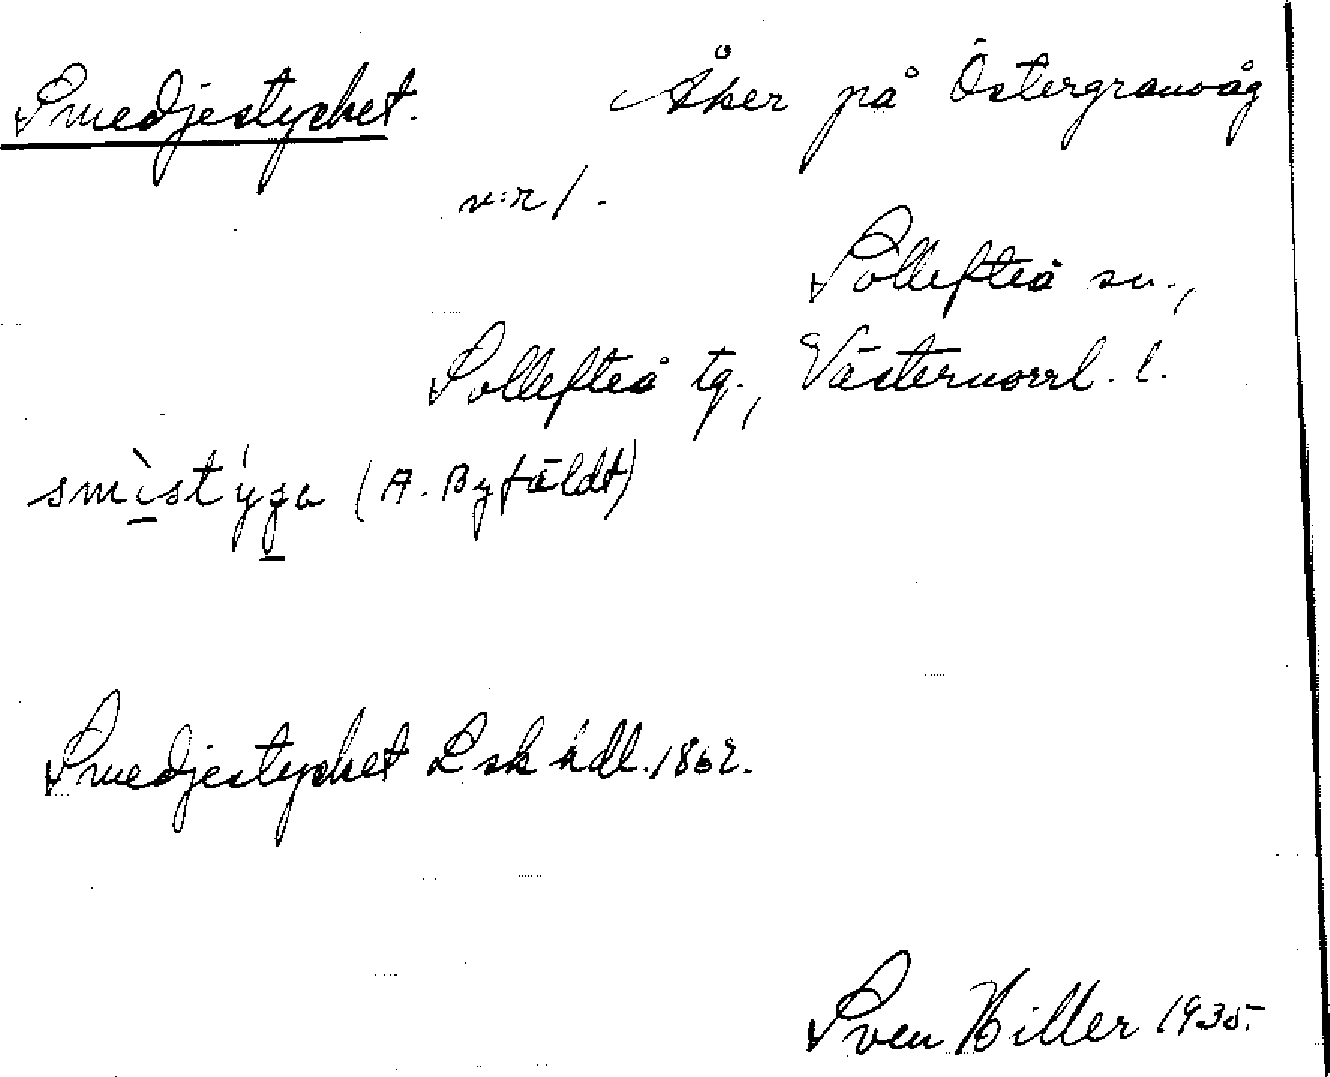 Smedjestycket. Åker på Östergranvåg
n:r 1.
Sollefteå sn.,
Sollefteå tg., Västernorrl. l.
(A. Byfäldt)
Smedjestycket Lsk hdl. 1862.
Sven Hiller 1935.